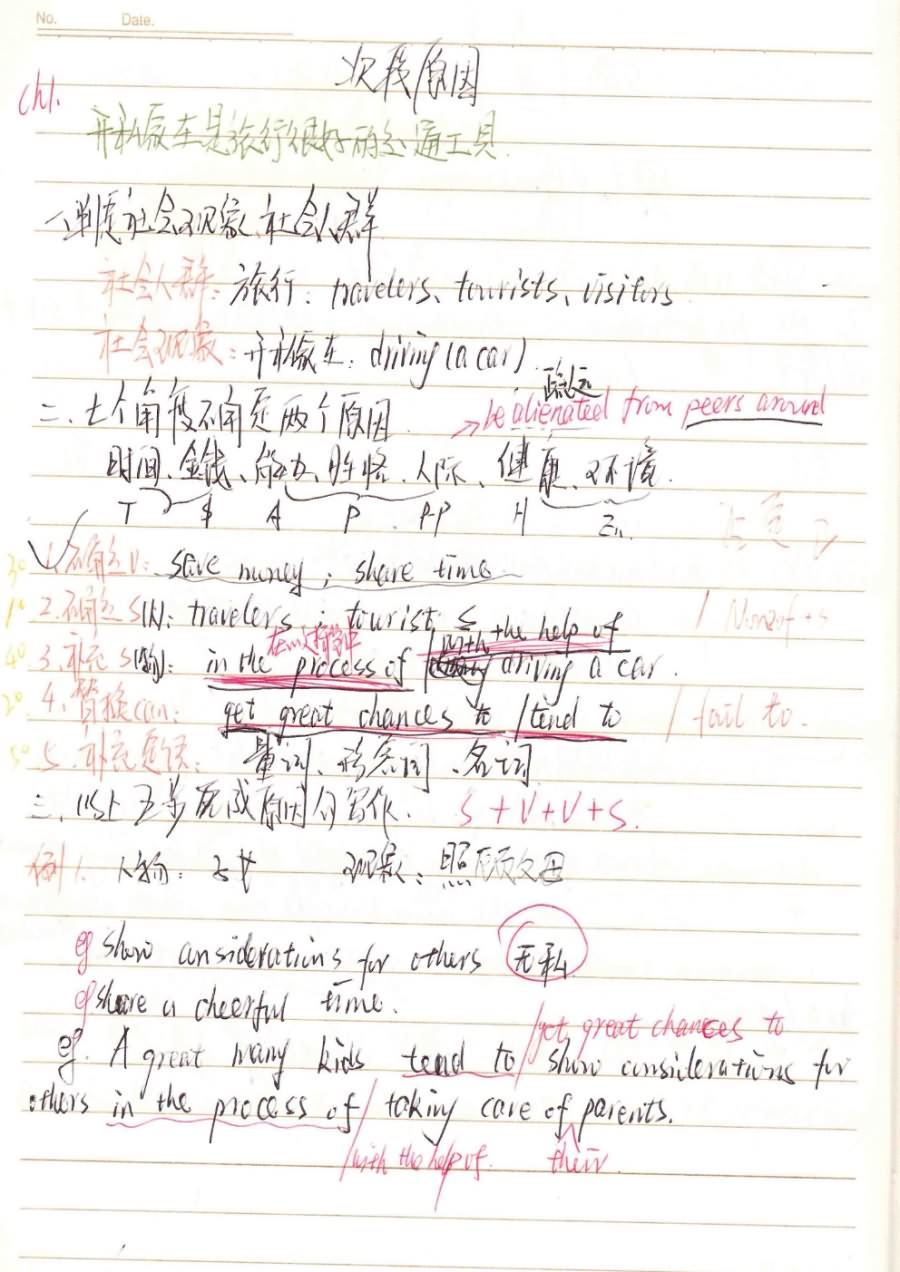 No. Date.
次段原因
ch1.
开私家车是旅行很好的交通工具.
一、判定社会现象、社会人群
社会人群: 旅行: travelers、tourists、visitors
社会现象: 开私家车: driving (a car)
疏远
二、七个角度确定两个原因
→ be alienated from peers around
时间、金钱、能力、性格、人际、健康、环境.
T $ A P P-P H En
3° 1.确定V: save money ; share time
1° 2.确定S(人): travelers ; tourists
/with the help of
4° 3.补充S(物): in the process of driving a car.
2° 4.替换can: get great chances to /tend to /fail to.
5° 5.补充定语: 量词、形容词、名词
三、以上五步完成原因句写作. S+V+V+S.
例1. 人物: 子女 现象: 照顾父母
eg show considerations for others 无私
eg share a cheerful time.
/get great chances to
eg. A great many kids tend to show considerations for
others in the process of / taking care of parents.
/with the help of. their